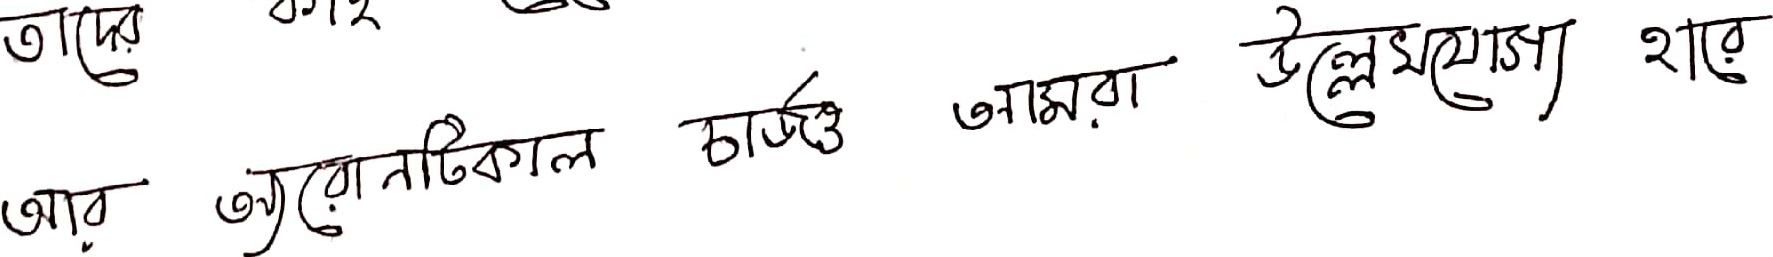 তাদের
আর অ্যারোনটিকাল চার্জও আমরা উল্লেখযোগ্য হারে